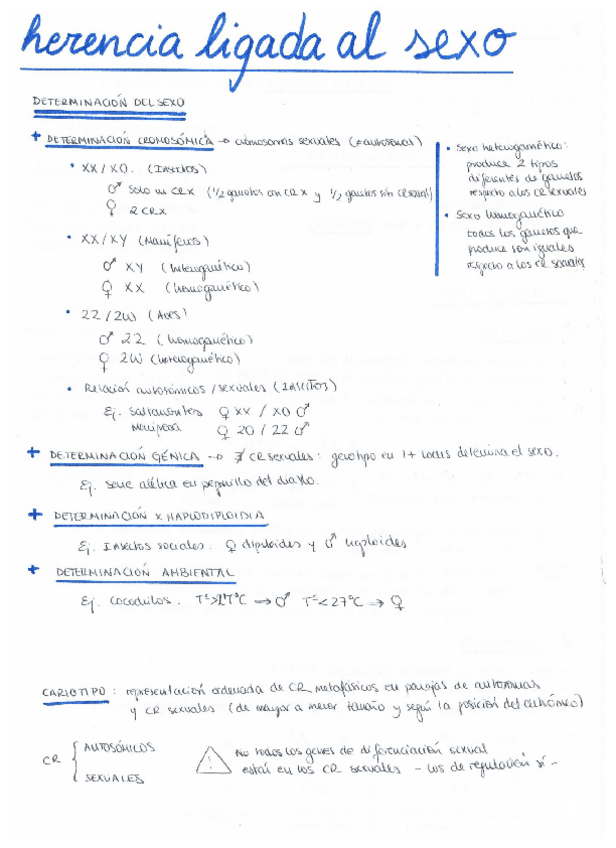 herencia ligada al sexo
DETERMINACIÓN DEL SEXO
+ DETERMINACIÓN CROMOSÓMICA → cromosomas sexuales (≠ autosomas)
• XX/XO. (Insectos)
♂ Solo un CRX (1/2 gametos con CR X y 1/2 gametos sin CR sexual)
♀ 2 CRX
• XX/XY (Mamíferos)
♂ XY (heterogamético)
♀ XX (homogamético)
• ZZ/ZW (Aves)
♂ ZZ (homogamético)
♀ ZW (heterogamético)
• Relación autosómicos/sexuales (Insectos)
Ej. Saltamontes ♀ XX / XO ♂
Mariposa ♀ ZO / ZZ ♂
• Sexo heterogamético:
produce 2 tipos
diferentes de gametos
respecto a los CR sexuales
• Sexo homogamético
todos los gametos que
produce son iguales
respecto a los CR sexuales
+ DETERMINACIÓN GÉNICA → ∄ CR sexuales: genotipo en 1+ locus determina el sexo.
Ej. Serie alélica en pepinillo del diablo.
+ DETERMINACIÓN X HAPLODIPLOIDIA
Ej. Insectos sociales: ♀ diploides y ♂ haploides
+ DETERMINACIÓN AMBIENTAL
Ej. Cocodrilos. Tª>27°C → ♂ Tª<27°C → ♀
CARIOTIPO: representación ordenada de CR metafásicos en parejas de autosomas
y CR sexuales (de mayor a menor tamaño y según la posición del centrómero)
CR { AUTOSÓMICOS
SEXUALES
! No todos los genes de diferenciación sexual
están en los CR sexuales - los de regulación sí -